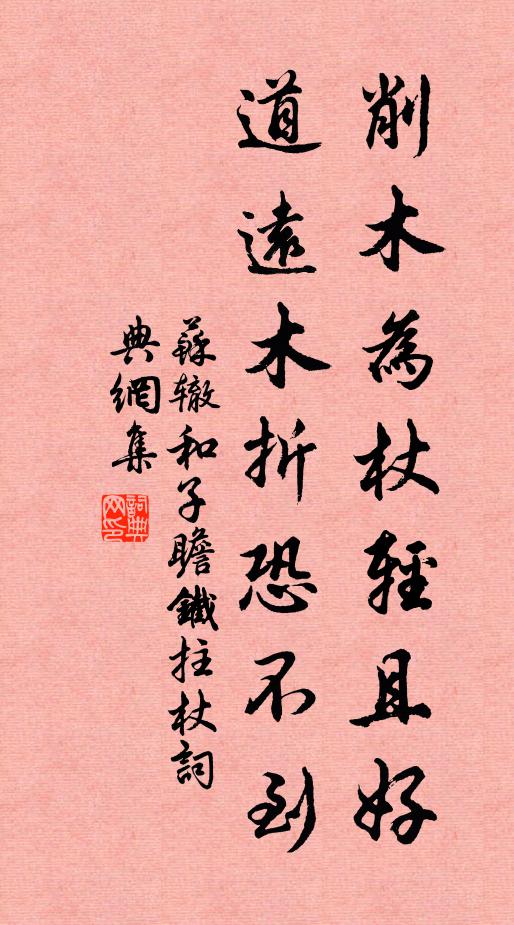 削木為杖輕且好
道遠木折恐不到
蘇辙和子瞻鐵拄杖詞
典網集
詞典网印